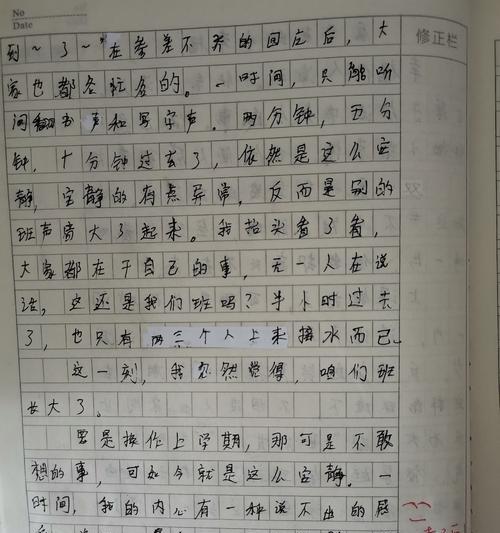 No
Date
修正栏
到~了~"在参差不齐的回应后，大
家也都各忙各的。一时间，只能听
间翻书声和写字声。两分钟，五分
钟，十分钟过去了，依然是这么安
静，安静的有点异常，反而是别的
班声音大了起来。我抬头看了看，
大家都在干自己的事，无一人在说
话，这还是我们班吗？半小时过去
了，也只有两三个人上来接水而已。
这一刻，我忽然觉得，咱们班
长大了。
要是换作上学期，那可是不敢
想的事，可如今就是这么安静。一
时间，我的内心有一种说不出的感